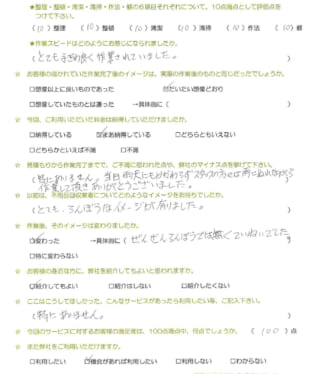 ★整理・整頓・清潔・清掃・作法・躾の6項目それぞれについて、10点満点として評価点を
つけて下さい。
(10) 整理 (10) 整頓 (10) 清潔 (10) 清掃 (10) 作法 (10) 躾
★作業スピードはどのようにお感じになられましたか。
(とても手ぎわ良く作業されていました。)
☆ お客様の描かれていた作業完了後のイメージは、実際の作業後のものと同じだったでしょうか。
□想像以上に良いものであった ☑だいたい想像どおり
□想像していたものとは違った →具体的に( )
☆ 今回、ご利用いただいた料金は納得していただけましたか。
□納得している ☑まあ納得している □どちらともいえない
□どちらかといえば不満 □不満
☆ 見積もりから作業完了までで、ご不満に思われた点や、弊社のマイナス点を挙げて下さい。
(特にありません。当日雨天にもかかわらず
作業して頂きありがとうございました。)
☆ 以前は、不用品回収業者についてどのようなイメージをお持ちでしたか。
(とても、らんぼうなイメージが有りました。)
☆ 作業後、そのイメージは変わりましたか。
☑変わった →具体的に(ぜんぜんらんぼうでは無くていねいでした)
□特に変わらない
☆ お客様の身近な方に、弊社を紹介してもよいと思われますか。
☑紹介してもよい □紹介はしない □紹介したくない
☆ ここはこうしてほしかった、こんなサービスがあったら利用したい等、ご記入下さい。
(特に ありません。)
☆ 今回のサービスに対するお客様の満足度は、100点満点中、何点でしょうか。(100)点
☆ また弊社をご利用いただけますか。
□利用したい ☑機会があれば利用したい □利用しない □わからない